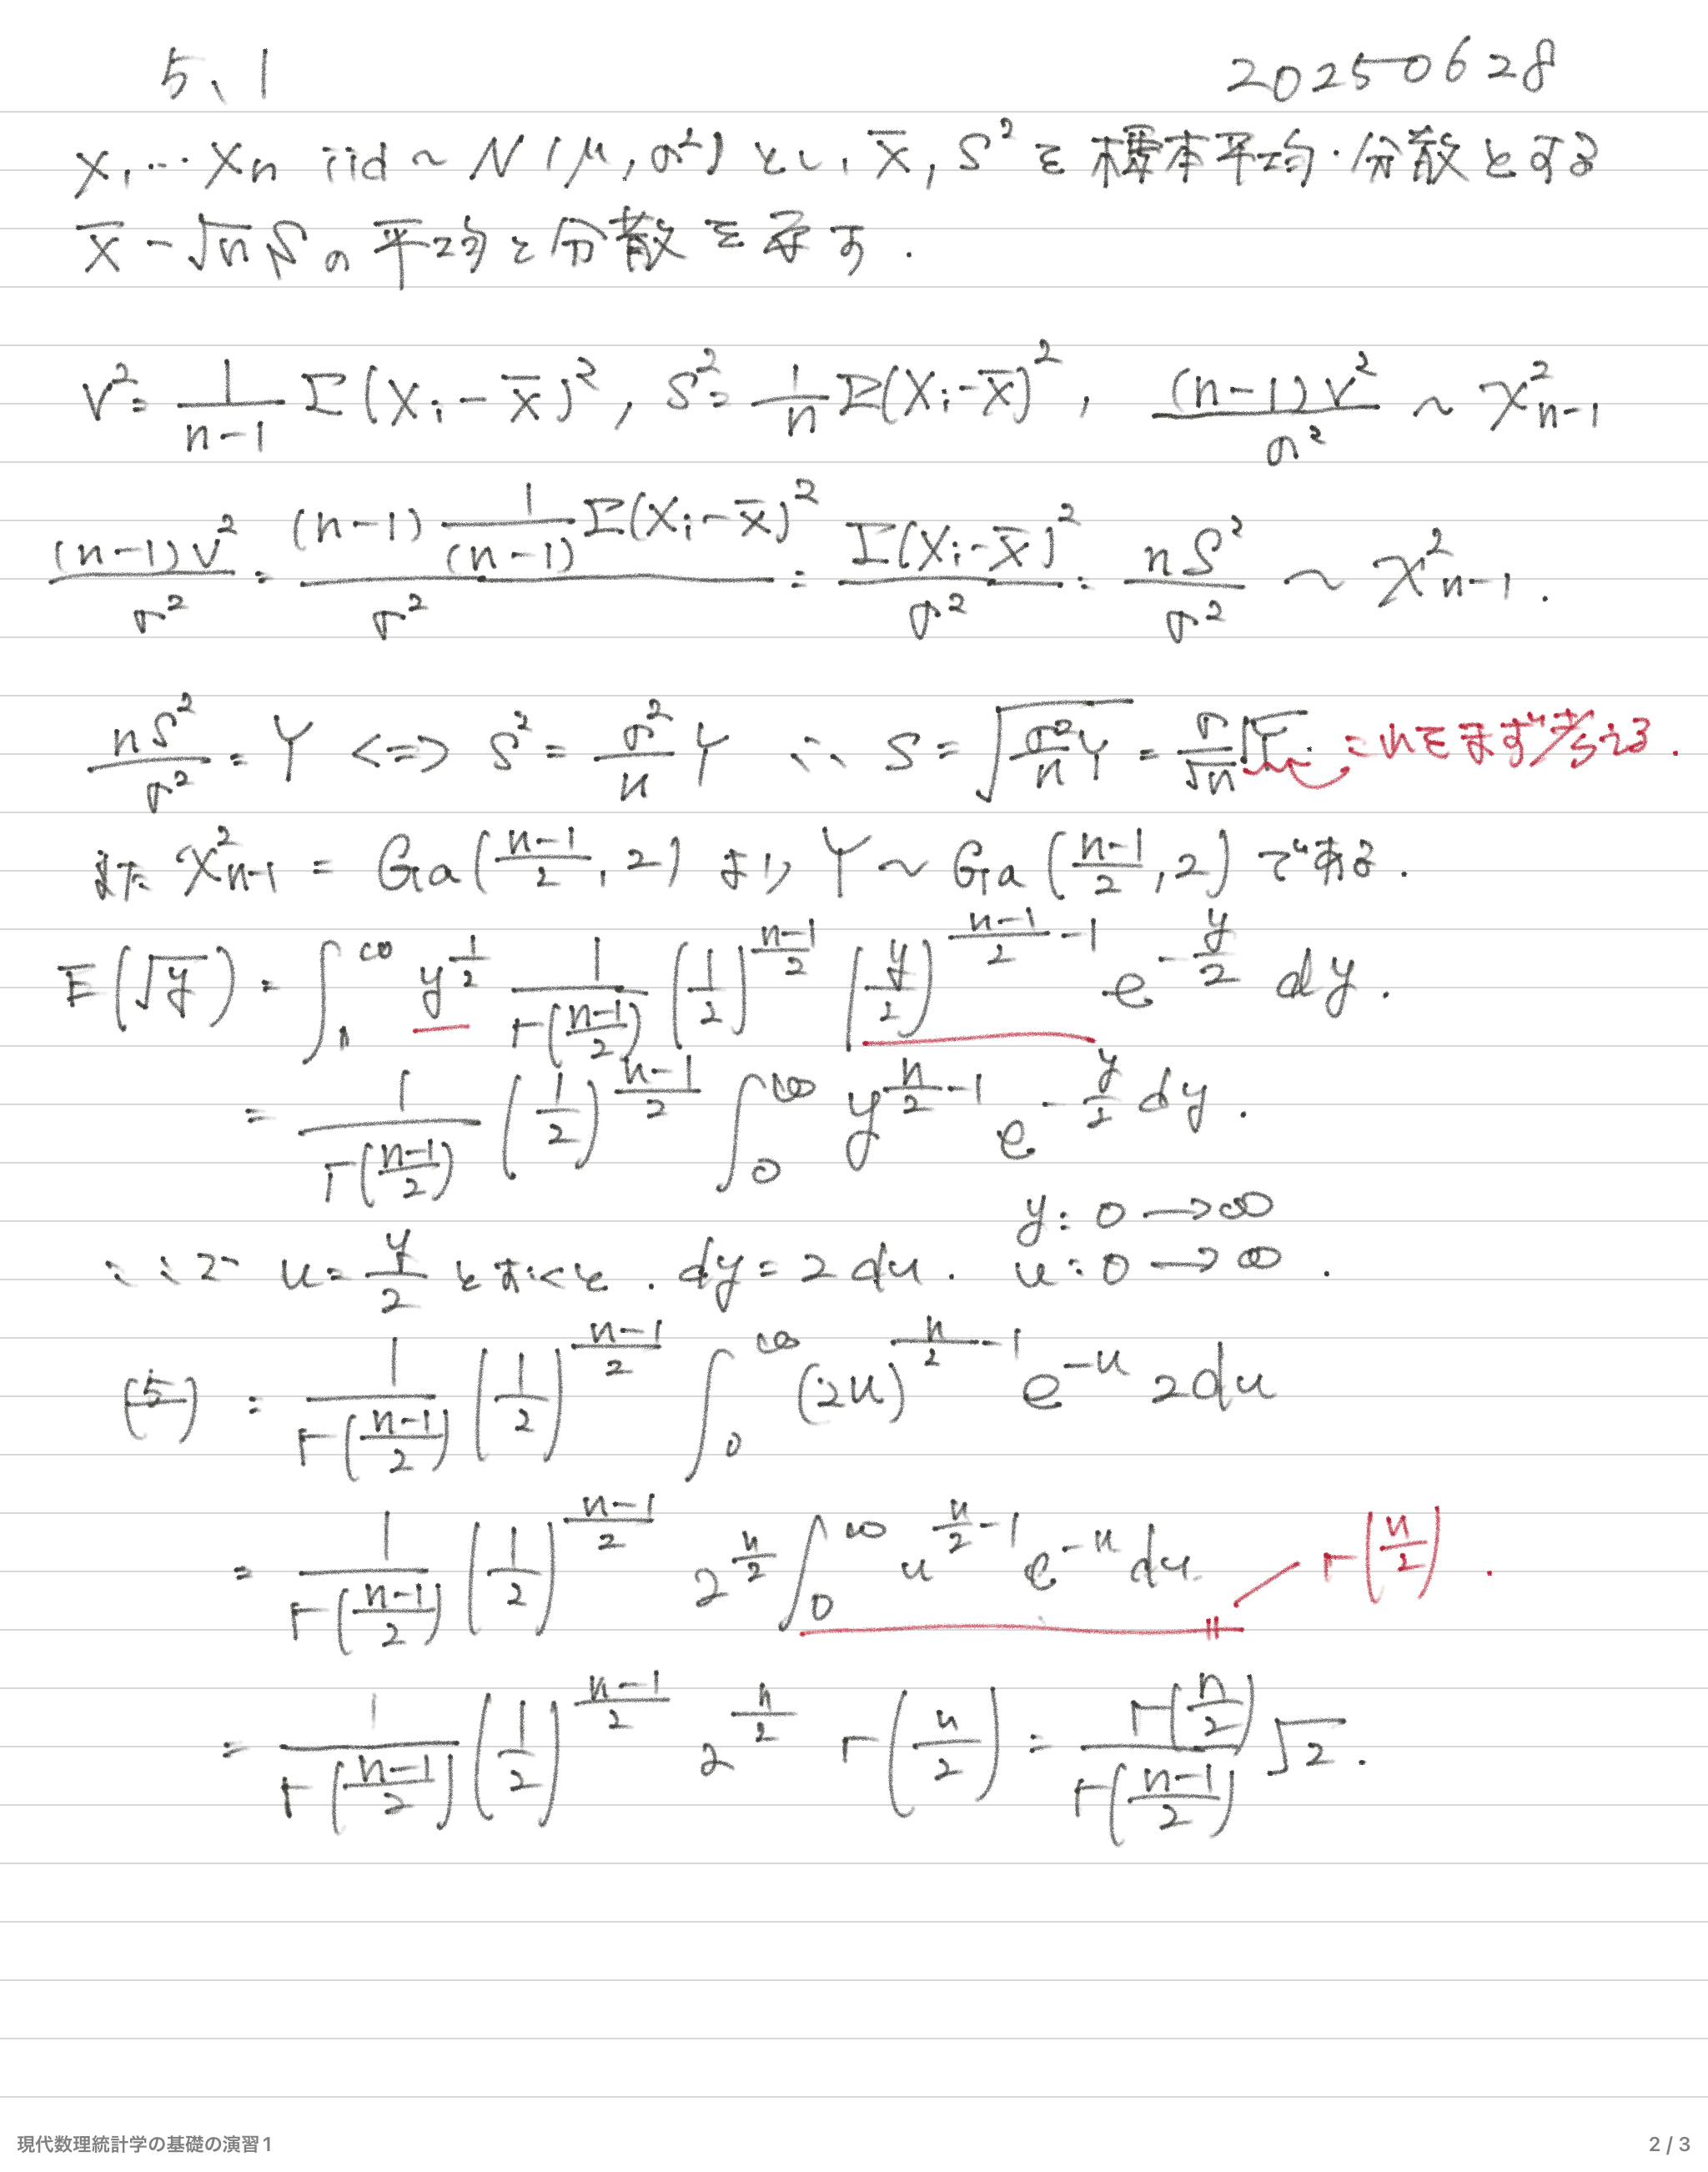 5.1 20250628
X₁…Xn iid ~ N(μ, σ²) とし, X̄, S² を標本平均・分散とする
X̄ - √n S の平均と分散を示す.
V² = 1/(n-1) Σ(Xi - X̄)², S² = 1/n Σ(Xi - X̄)², (n-1)V²/σ² ~ χ²n-1
(n-1)V²/σ² = (n-1) 1/(n-1) Σ(Xi - X̄)² / σ² = Σ(Xi - X̄)²/σ² = nS²/σ² ~ χ²n-1.
nS²/σ² = Y <=> S² = σ²/n Y ∴ S = √(σ²/n Y) = σ/√n √Y. これをまず考える.
また χ²n-1 = Ga((n-1)/2, 2) より Y ~ Ga((n-1)/2, 2) である.
E(√y) = ∫₀^∞ y^(1/2) 1/Γ((n-1)/2) (1/2)^((n-1)/2) (y/2)^((n-1)/2 - 1) e^(-y/2) dy.
= 1/Γ((n-1)/2) (1/2)^((n-1)/2) ∫₀^∞ y^(n/2 - 1) e^(-y/2) dy.
y: 0 → ∞
ここで u = y/2 とおくと. dy = 2 du. u: 0 → ∞.
(与) = 1/Γ((n-1)/2) (1/2)^((n-1)/2) ∫₀^∞ (2u)^(n/2 - 1) e^(-u) 2du
= 1/Γ((n-1)/2) (1/2)^((n-1)/2) 2^(n/2) ∫₀^∞ u^(n/2 - 1) e^(-u) du. Γ(n/2).
= 1/Γ((n-1)/2) (1/2)^((n-1)/2) 2^(n/2) Γ(n/2) = Γ(n/2)/Γ((n-1)/2) √2.
現代数理統計学の基礎の演習1 2 / 3